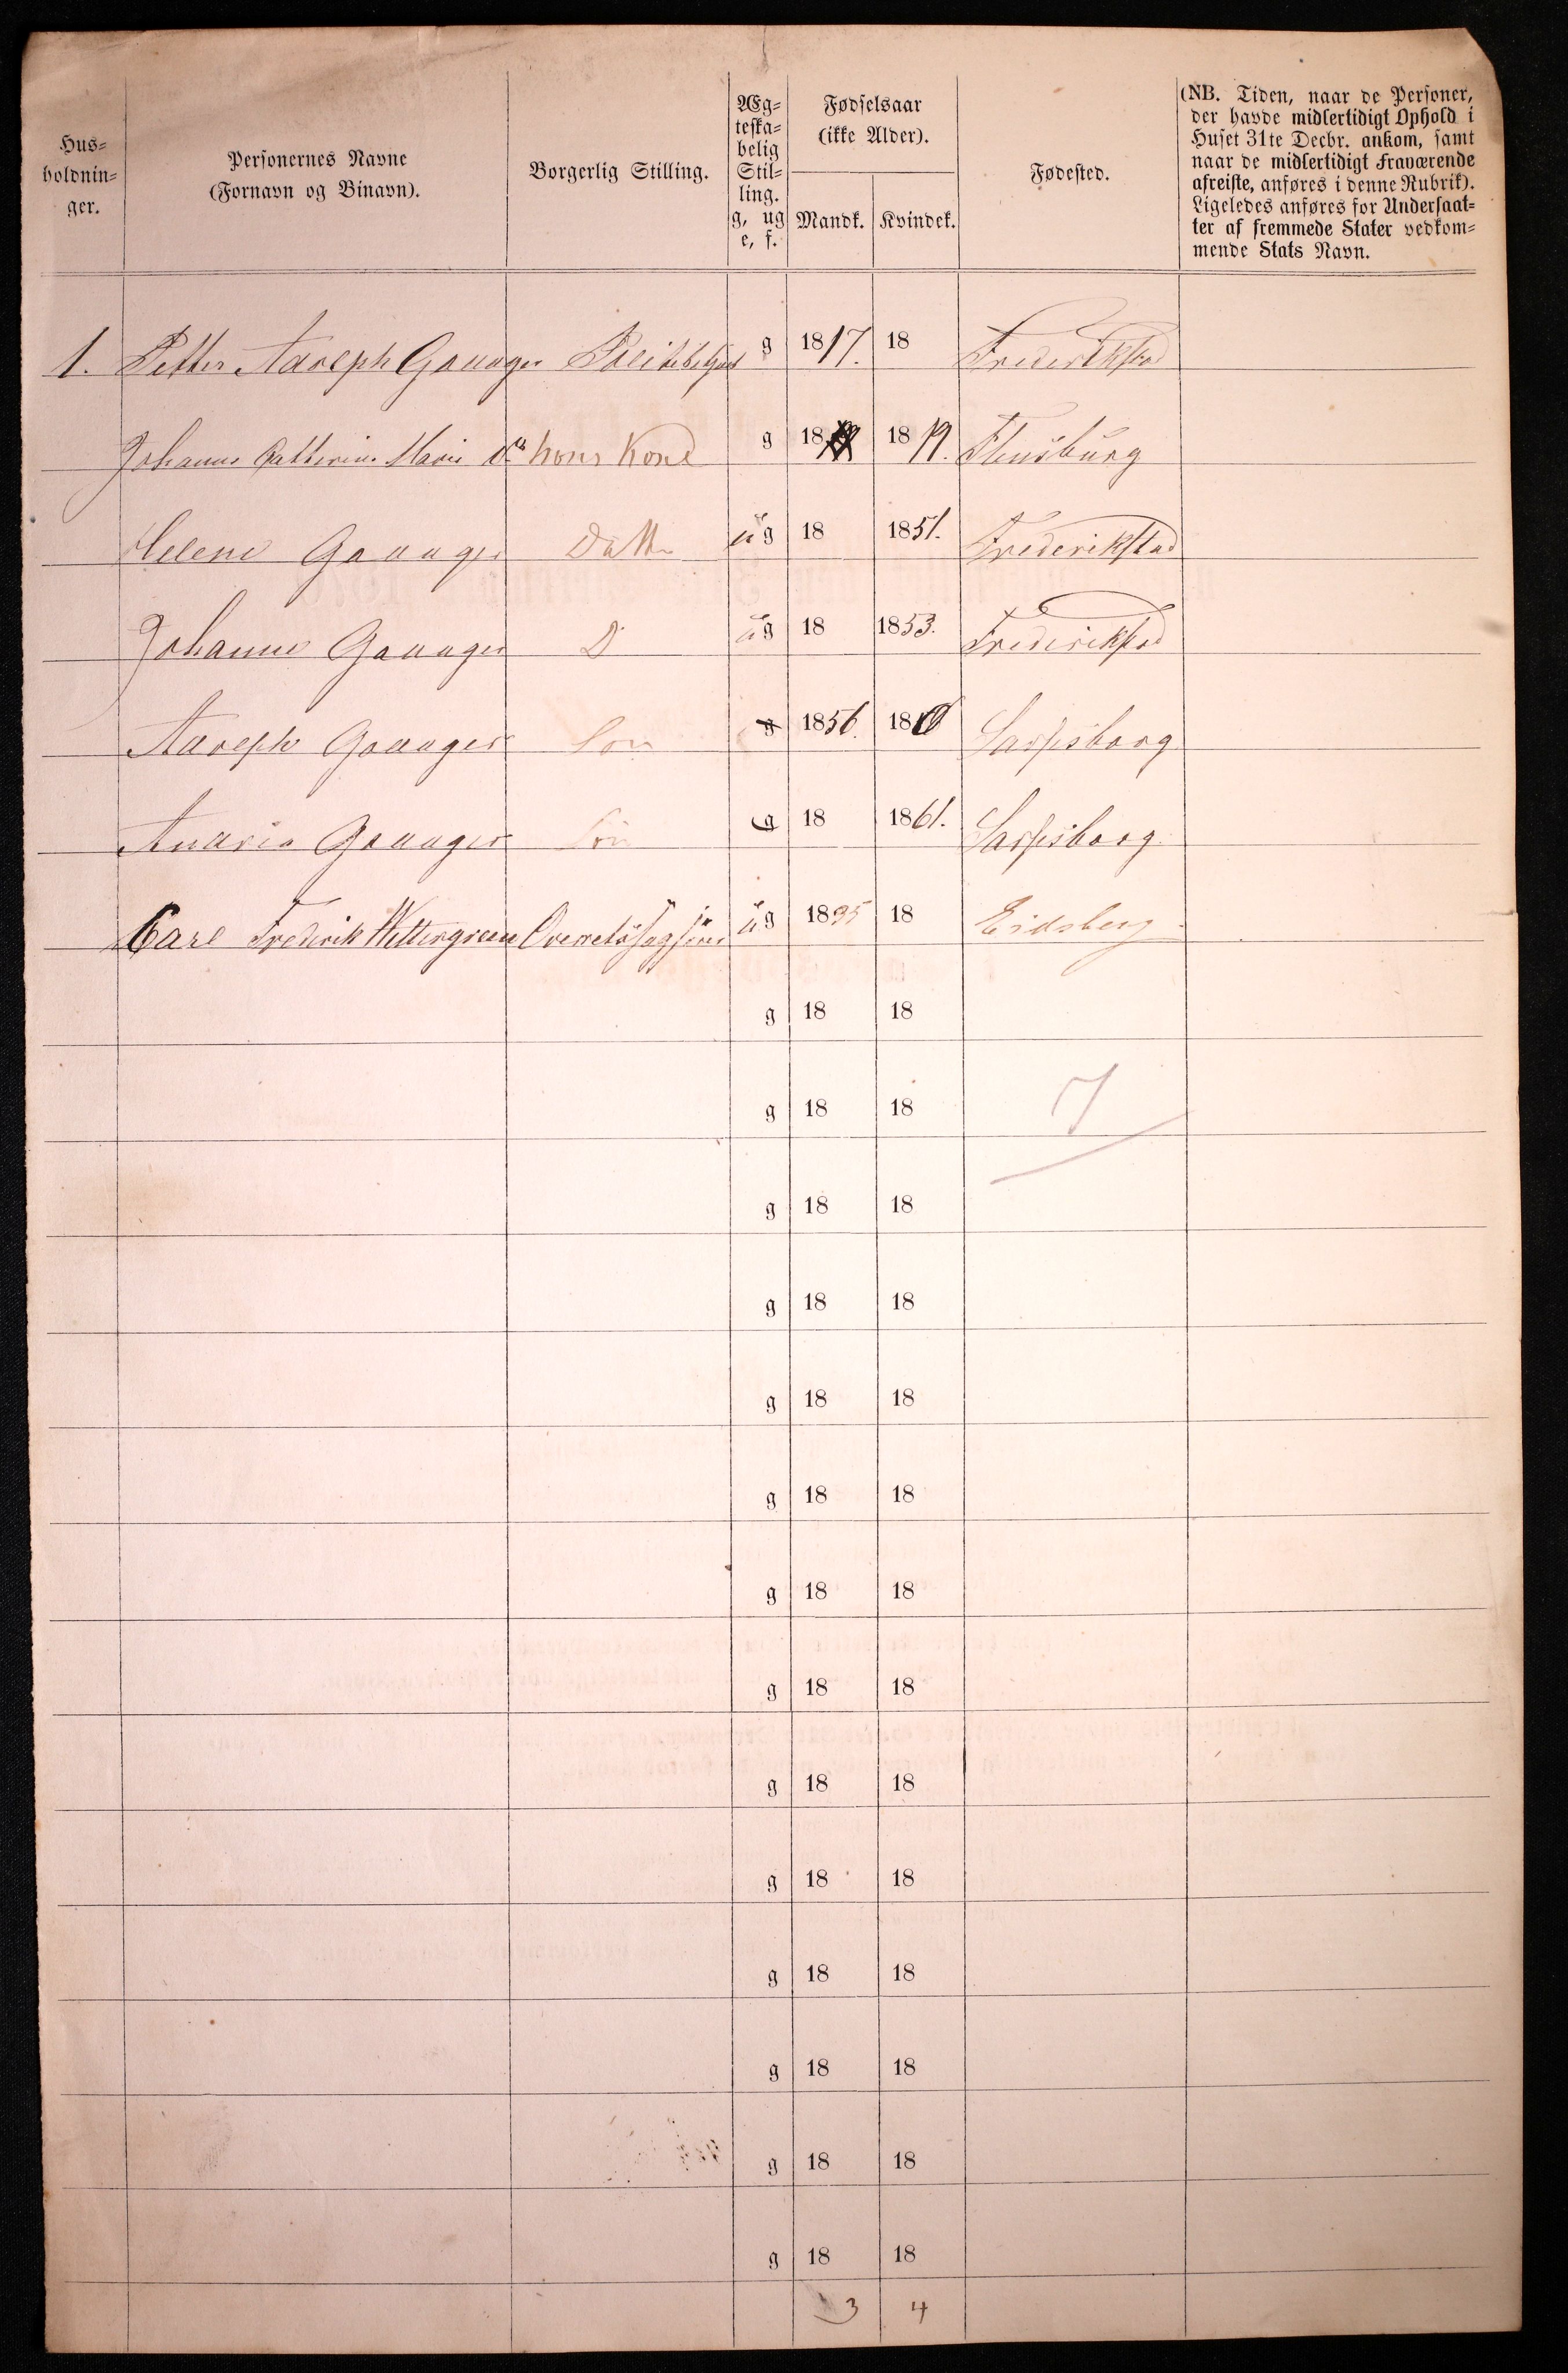 Hus=
holdnin=
ger.
Personernes Navne
(Fornavn og Binavn).
Borgerlig Stilling.
Æg=
teska=
belig
Stil=
ling.
g, ug
e, f.
Fødselsaar
(ikke Alder).
Mandk. Kvindek.
Fødested.
(NB. Tiden, naar de Personer,
der havde midlertidigt Ophold i
Huset 31te Decbr. ankom, samt
naar de midlertidigt Fraværende
afreiste, anføres i denne Rubrik).
Ligeledes anføres for Undersaat=
ter af fremmede Stater vedkom=
mende Stats Navn.
1. Petter g 1817. 18 Frederikstad
Johanne Catherine Marie Do hans Kone g 18 1819. Flensburg
Helene ug 18 1851. Frederikstad
Johanne D ug 18 1853. Frederikstad
Søn g 1856. 18 Sarpsborg
Søn g 18 1861. Sarpsborg
Carl Frederik Wettergreen Overretssagfører ug 1835 18 Eidsberg
g 18 18
g 18 18 7
g 18 18
g 18 18
g 18 18
g 18 18
g 18 18
g 18 18
g 18 18
g 18 18
g 18 18
g 18 18
g 18 18
g 18 18
3 4